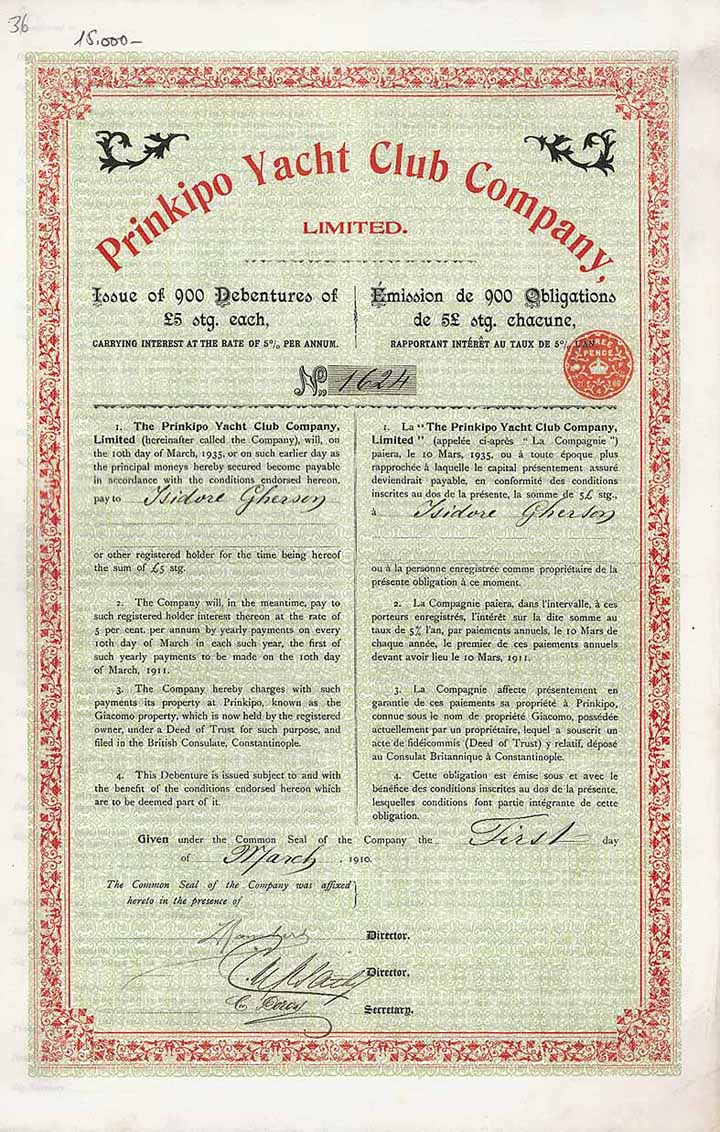 36
15.000-
Prinkipo Yacht Club Company,
LIMITED.
Issue of 900 Debentures of
£5 stg. each,
CARRYING INTEREST AT THE RATE OF 5% PER ANNUM.
Émission de 900 Obligations
de 5£ stg. chacune,
RAPPORTANT INTÉRÊT AU TAUX DE 5% L'AN.
THREE
PENCE
No 1624
1. The Prinkipo Yacht Club Company,
Limited (hereinafter called the Company), will, on
the 10th day of March, 1935, or on such earlier day as
the principal moneys hereby secured become payable
in accordance with the conditions endorsed hereon,
pay to Isidore Gherson
or other registered holder for the time being hereof
the sum of £5 stg.
2. The Company will, in the meantime, pay to
such registered holder interest thereon at the rate of
5 per cent. per annum by yearly payments on every
10th day of March in each such year, the first of
such yearly payments to be made on the 10th day
of March, 1911.
3. The Company hereby charges with such
payments its property at Prinkipo, known as the
Giacomo property, which is now held by the registered
owner, under a Deed of Trust for such purpose, and
filed in the British Consulate, Constantinople.
4. This Debenture is issued subject to and with
the benefit of the conditions endorsed hereon which
are to be deemed part of it.
1. La "The Prinkipo Yacht Club Company,
Limited" (appelée ci-après "La Compagnie")
paiera, le 10 Mars, 1935, ou à toute époque plus
rapprochée à laquelle le capital présentement assuré
deviendrait payable, en conformité des conditions
inscrites au dos de la présente, la somme de 5£ stg.,
à Isidore Gherson
ou à la personne enregistrée comme propriétaire de la
présente obligation à ce moment.
2. La Compagnie paiera, dans l'intervalle, à ces
porteurs enregistrés, l'intérêt sur la dite somme au
taux de 5% l'an, par paiements annuels, le 10 Mars de
chaque année, le premier de ces paiements annuels
devant avoir lieu le 10 Mars, 1911.
3. La Compagnie affecte présentement en
garantie de ces paiements sa propriété à Prinkipo,
connue sous le nom de propriété Giacomo, possédée
actuellement par un propriétaire, lequel a souscrit un
acte de fidéicommis (Deed of Trust) y relatif, déposé
au Consulat Britannique à Constantinople.
4. Cette obligation est émise sous et avec le
bénéfice des conditions inscrites au dos de la présente,
lesquelles conditions font partie intégrante de cette
obligation.
Given under the Common Seal of the Company the First day
of March, 1910.
The Common Seal of the Company was affixed
hereto in the presence of
Director.
Director,
Secretary.